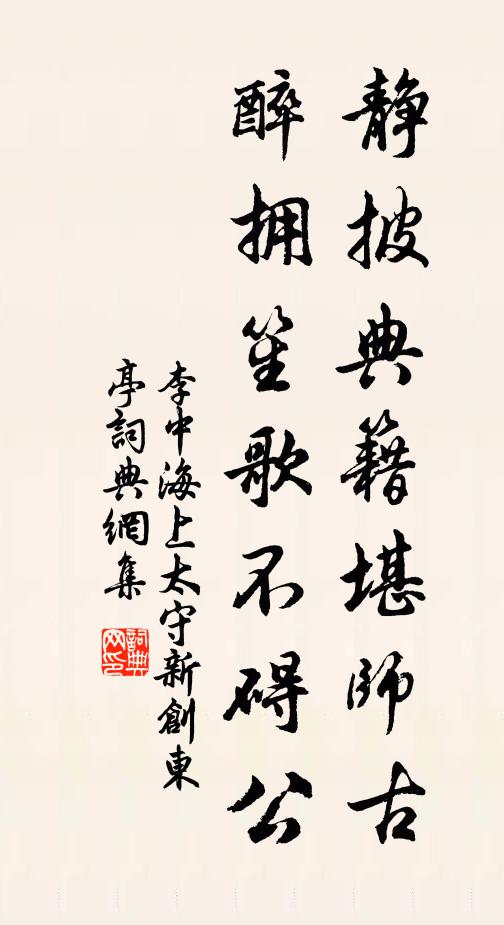 静披典籍堪師古
醉拥笙歌不碍公
李中海上太守新創東
亭詞典網集
詞典
网印